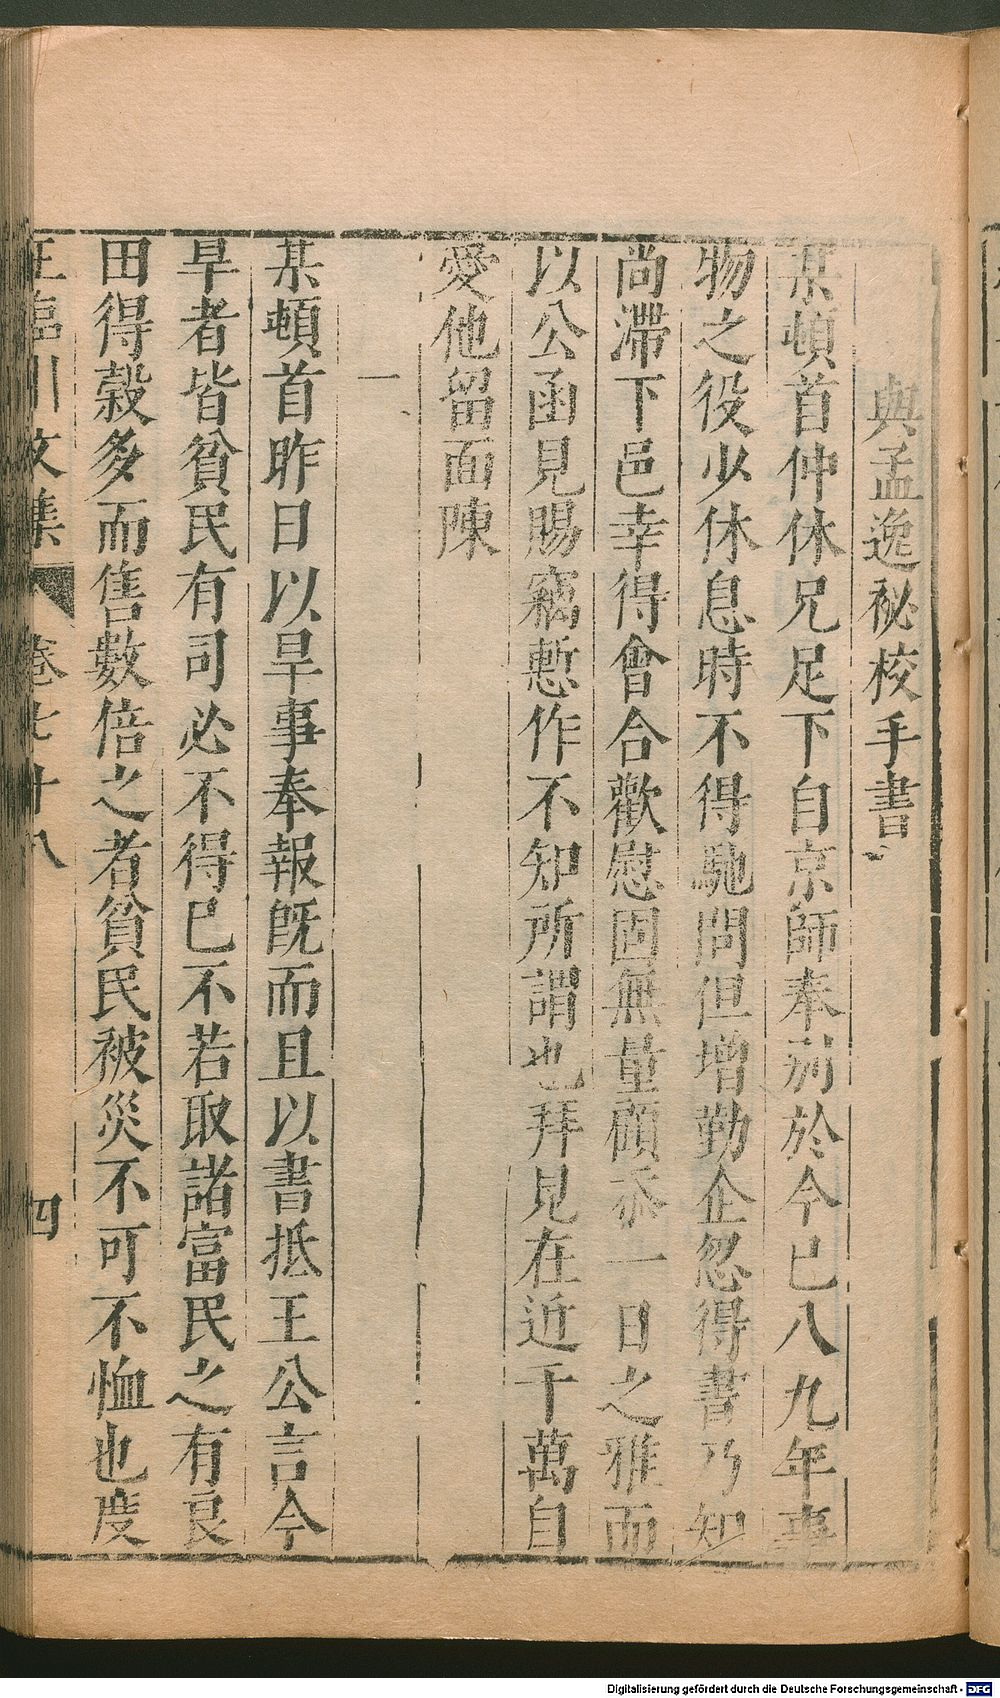 與孟逸祕校手書
某頓首仲休兄足下自京師奉別於今已八九年事
物之役少休息時不得馳問但增勤企忽得書乃知
尚滯下邑幸得會合歡慰固無量顧忝一日之雅而
以公函見賜竊慙作不知所謂也拜見在近千萬自
愛他留面陳
一
某頓首昨日以旱事奉報旣而且以書抵王公言今
旱者皆貧民有司必不得已不若取諸富民之有良
田得穀多而售數倍之者貧民被災不可不恤也度
王臨川文集 卷七十八 四
Digitalisierung gefördert durch die Deutsche Forschungsgemeinschaft - DFG